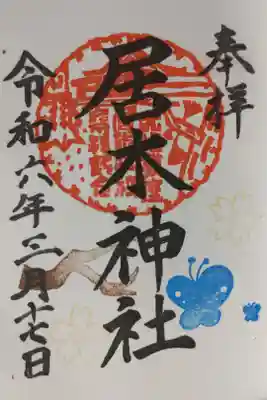 奉拝
居木神社
令和六年三月十七日